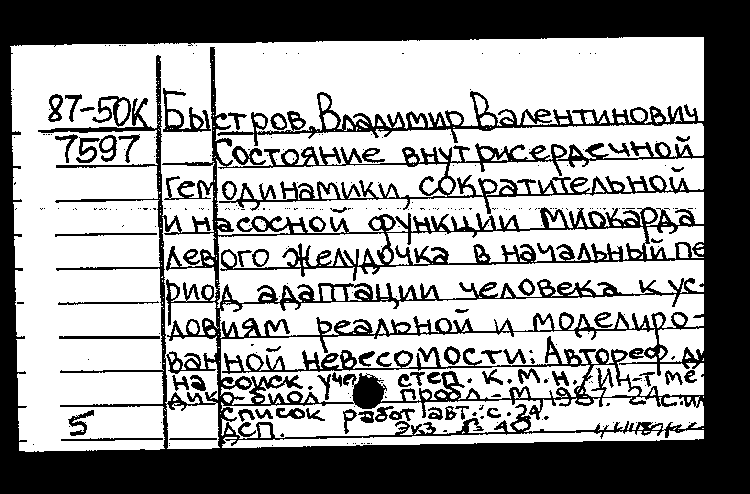 87-50К Быстров, Владимир Валентинович
7597 Состояние внутрисердечной
гемодинамики, сократительной
и насосной функции миокарда
левого желудочка в начальный пе
риод адаптации человека к ус-
ловиям реальной и моделиро-
ванной невесомости: Автореф. ди
на соиск. учен степ. к.м.н. / Ин-т ме-
дико-биол. пробл. - М, 1987. - 24с. ил
список работ авт.: с. 24.
5 ДСП. Экз. № 40.